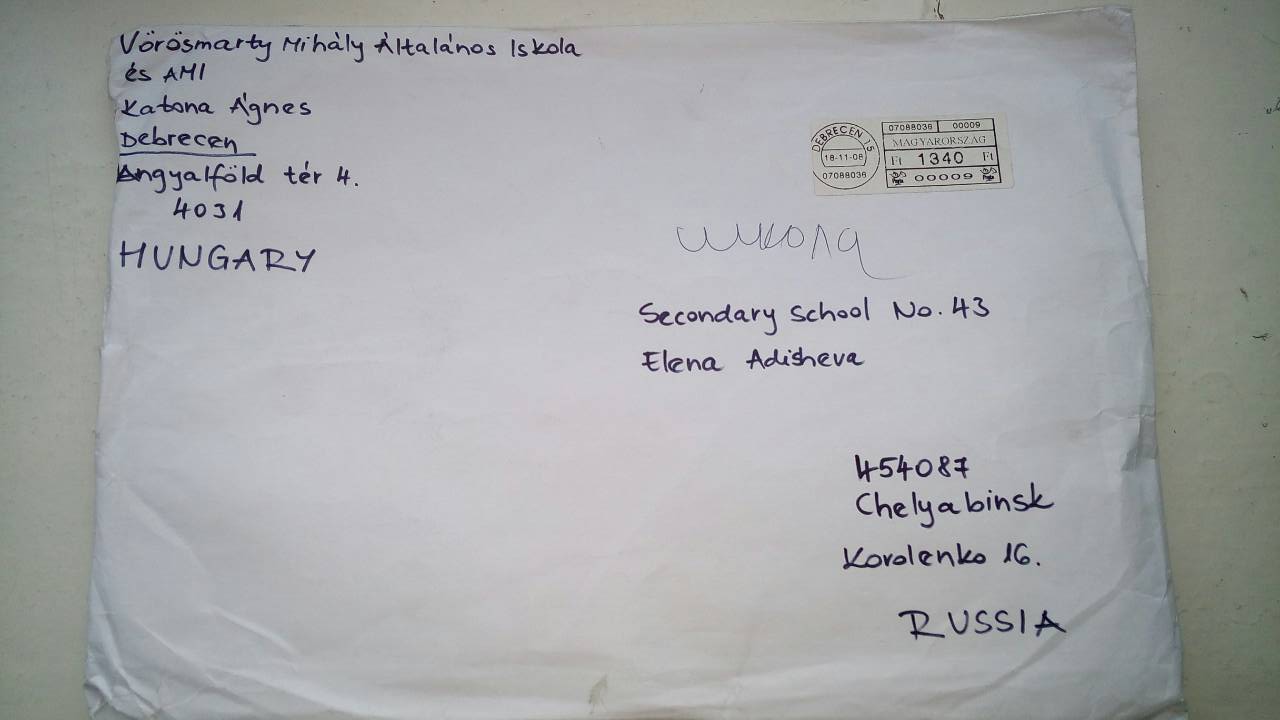 Vörösmarty Mihály Általános Iskola
és AMI
Katona Ágnes
Debrecen
Angyalföld tér 4.
4031
HUNGARY
DEBRECEN 15
18-11-08
07088036
07088036 00009
MAGYARORSZÁG
Ft 1340 Ft
00009
школа
Secondary School No. 43
Elena Adisheva
454087
Chelyabinsk
Korolenko 16.
RUSSIA